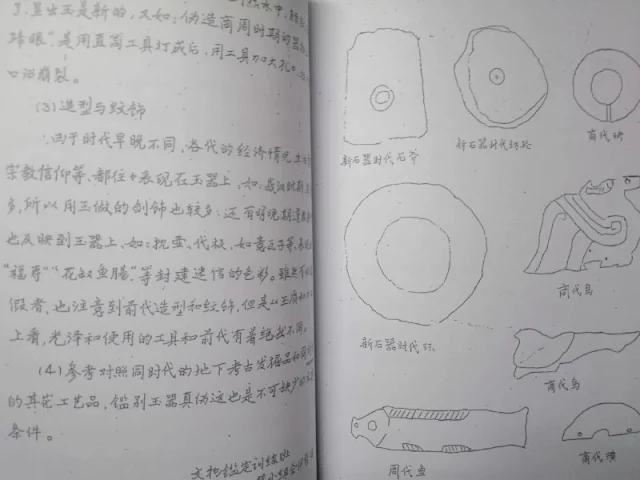 了,显出玉是新的,又如:伪造商周时期的器
"珠眼"是用直筒工具打成后,用工具加大孔
口沿崩裂。
(3)造型与纹饰
由于时代早晚不同,各代的经济情况
宗教信仰等,都往往表现在玉器上,如:战汉时期
多,所以用玉做的剑饰也较多;还有明晚期
也反映到玉器上,如:
"福寿""花
假者,也注意到前代造型和纹饰,但是从玉质和
上看,光泽和使用的工具和前代有着绝然不同。
(4)参考对照同时代的地下考古发掘品和
的其它工艺品,鉴别玉器真伪这也是不可缺少的
条件。
文物鉴定训练班
新石器时代石斧
新石器时代
商代玦
新石器时代环
商代鸟
商代鸟
周代鱼
商代璜